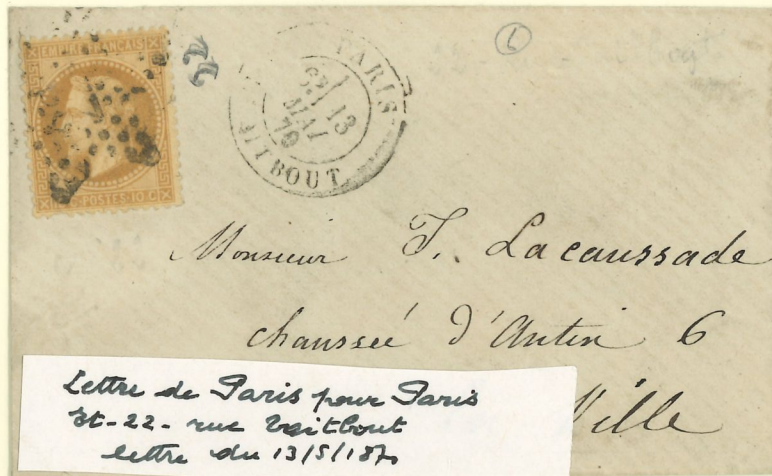 EMPIRE FRANÇAIS
POSTES 10 C
22
PARIS
13
MAI
70
AITBOUT
6
Monsieur J. Lacaussade
chaussée d'Antin 6
Ville
Lettre de Paris pour Paris
Et-22-rue Taitbout
lettre du 13/5/1870